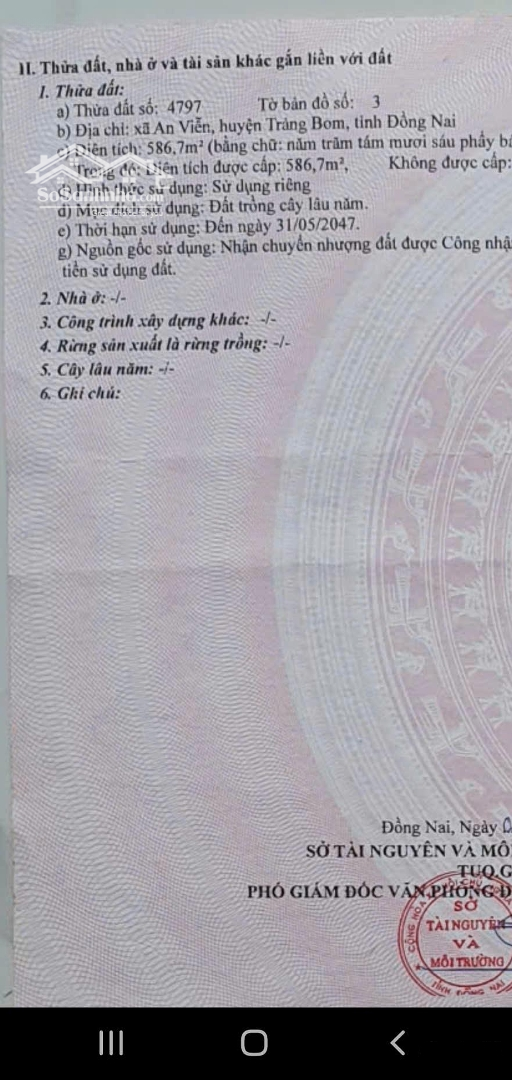 II. Thửa đất, nhà ở và tài sản khác gắn liền với đất
1. Thửa đất:
a) Thửa đất số: 4797 Tờ bản đồ số: 3
b) Địa chỉ: xã An Viễn, huyện Trảng Bom, tỉnh Đồng Nai
c) Diện tích: 586,7m² (bằng chữ: năm trăm tám mươi sáu phẩy bả
Trong đó: Diện tích được cấp: 586,7m², Không được cấp:
d) Hình thức sử dụng: Sử dụng riêng
đ) Mục đích sử dụng: Đất trồng cây lâu năm.
e) Thời hạn sử dụng: Đến ngày 31/05/2047.
g) Nguồn gốc sử dụng: Nhận chuyển nhượng đất được Công nhậ
tiền sử dụng đất.
2. Nhà ở: -/-
3. Công trình xây dựng khác: -/-
4. Rừng sản xuất là rừng trồng: -/-
5. Cây lâu năm: -/-
6. Ghi chú:
Đồng Nai, Ngày
SỞ TÀI NGUYÊN VÀ MÔI
TUQ.G
PHÓ GIÁM ĐỐC VĂN PHÒNG Đ
SỞ
TÀI NGUYÊN
VÀ
MÔI TRƯỜNG
TỈNH ĐỒNG NAI